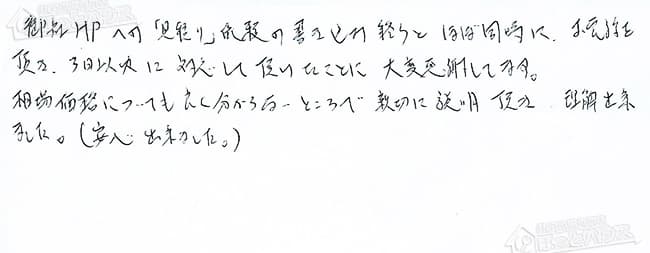 御社HPへの「見積り」依頼の書き込み終了とほぼ同時に、お電話を
頂き、3日以内に対応して頂いたことに大変感謝してます。
相場価格についても良く分からないところで親切に説明頂き、理解出来
ました。(安心出来ました。)